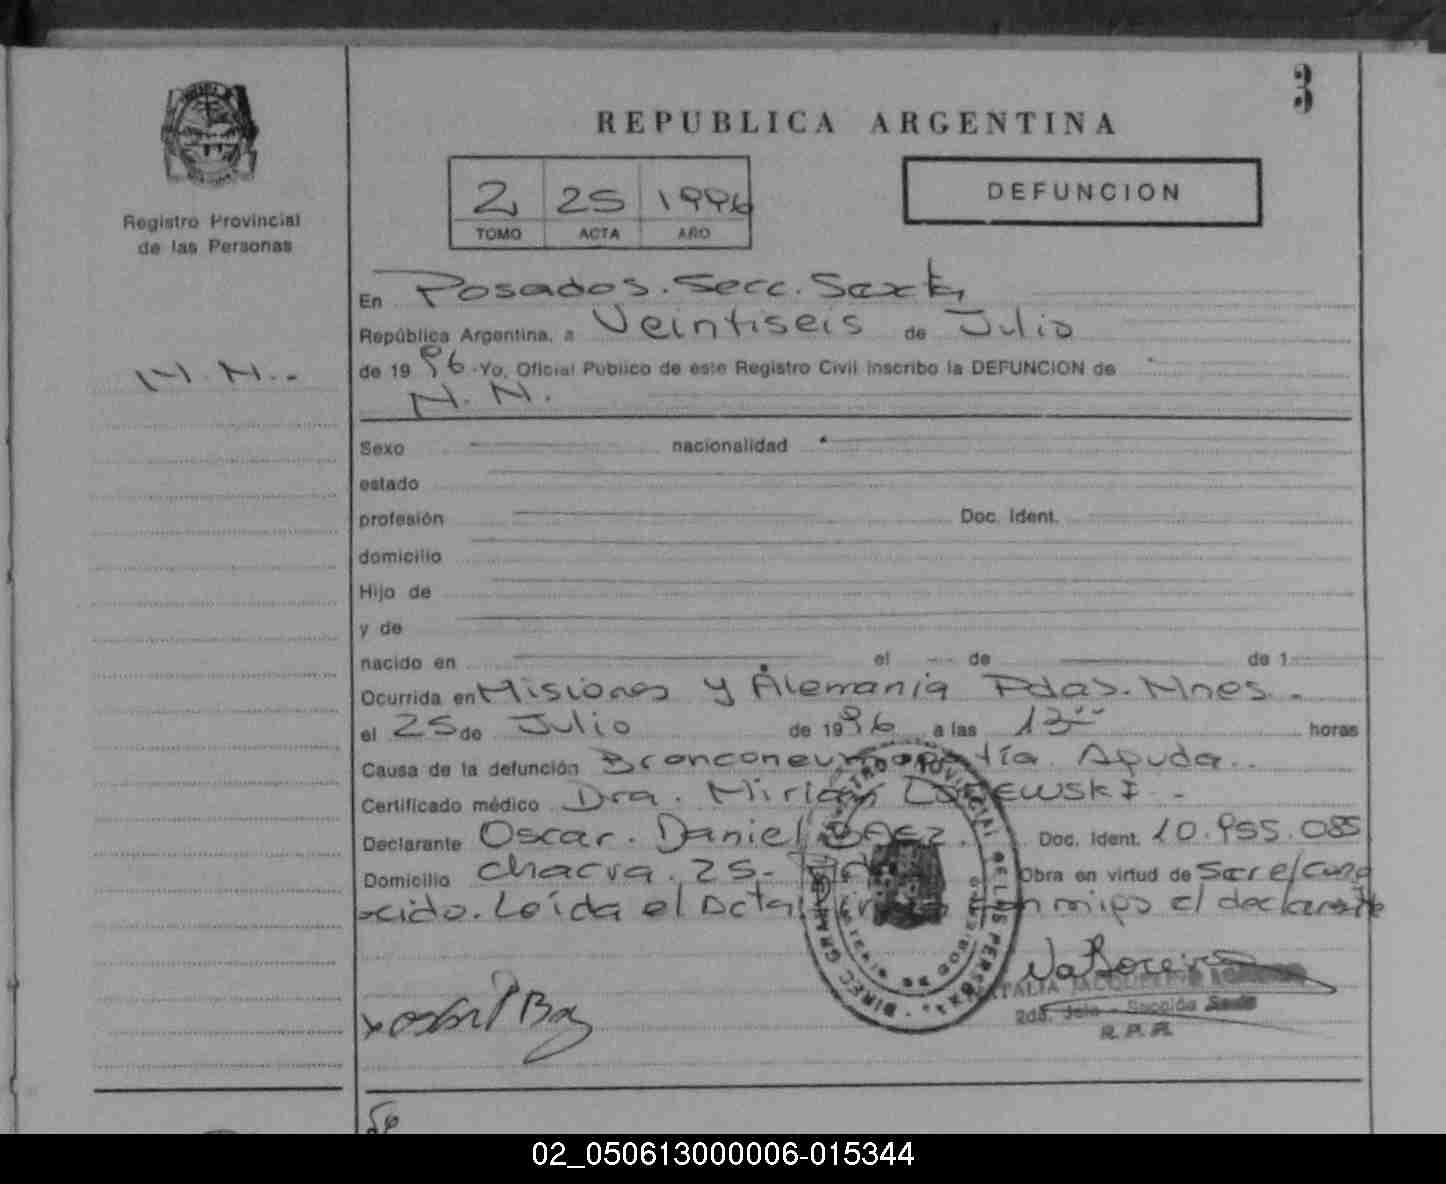 3
REPUBLICA ARGENTINA
2 25 1996
TOMO ACTA AÑO
DEFUNCION
Registro Provincial
de las Personas
N.N.-
En Posadas. Secc. Sexta
República Argentina, a Veintiseis de Julio
de 1996 -Yo, Oficial Público de este Registro Civil inscribo la DEFUNCION de
N. N.
Sexo nacionalidad
estado
profesión Doc. Ident.
domicilio
Hijo de
y de
nacido en el de de 1
Ocurrida en Misiones y Alemania Pdas. Mnes.
el 25 de Julio de 1996 a las 13 horas
Causa de la defunción Bronconeumopatía Aguda..
Certificado médico Dra. Miriam
Declarante Oscar. Daniel Baez. Doc. Ident. 10.955.085
Domicilio chacra. 25- Obra en virtud de
Leída el Acta el declarante
REGISTRO PROVINCIAL DE LAS PERSONAS
DIREC. GRAL.
2da. Jefe - Sección Sexta
R. P. P.
02_050613000006-015344